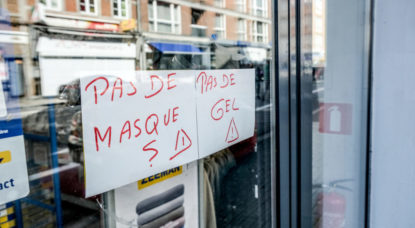 PAS DE
MASQUE
S ⚠
PAS DE
GEL
⚠
ZEEMAN
act